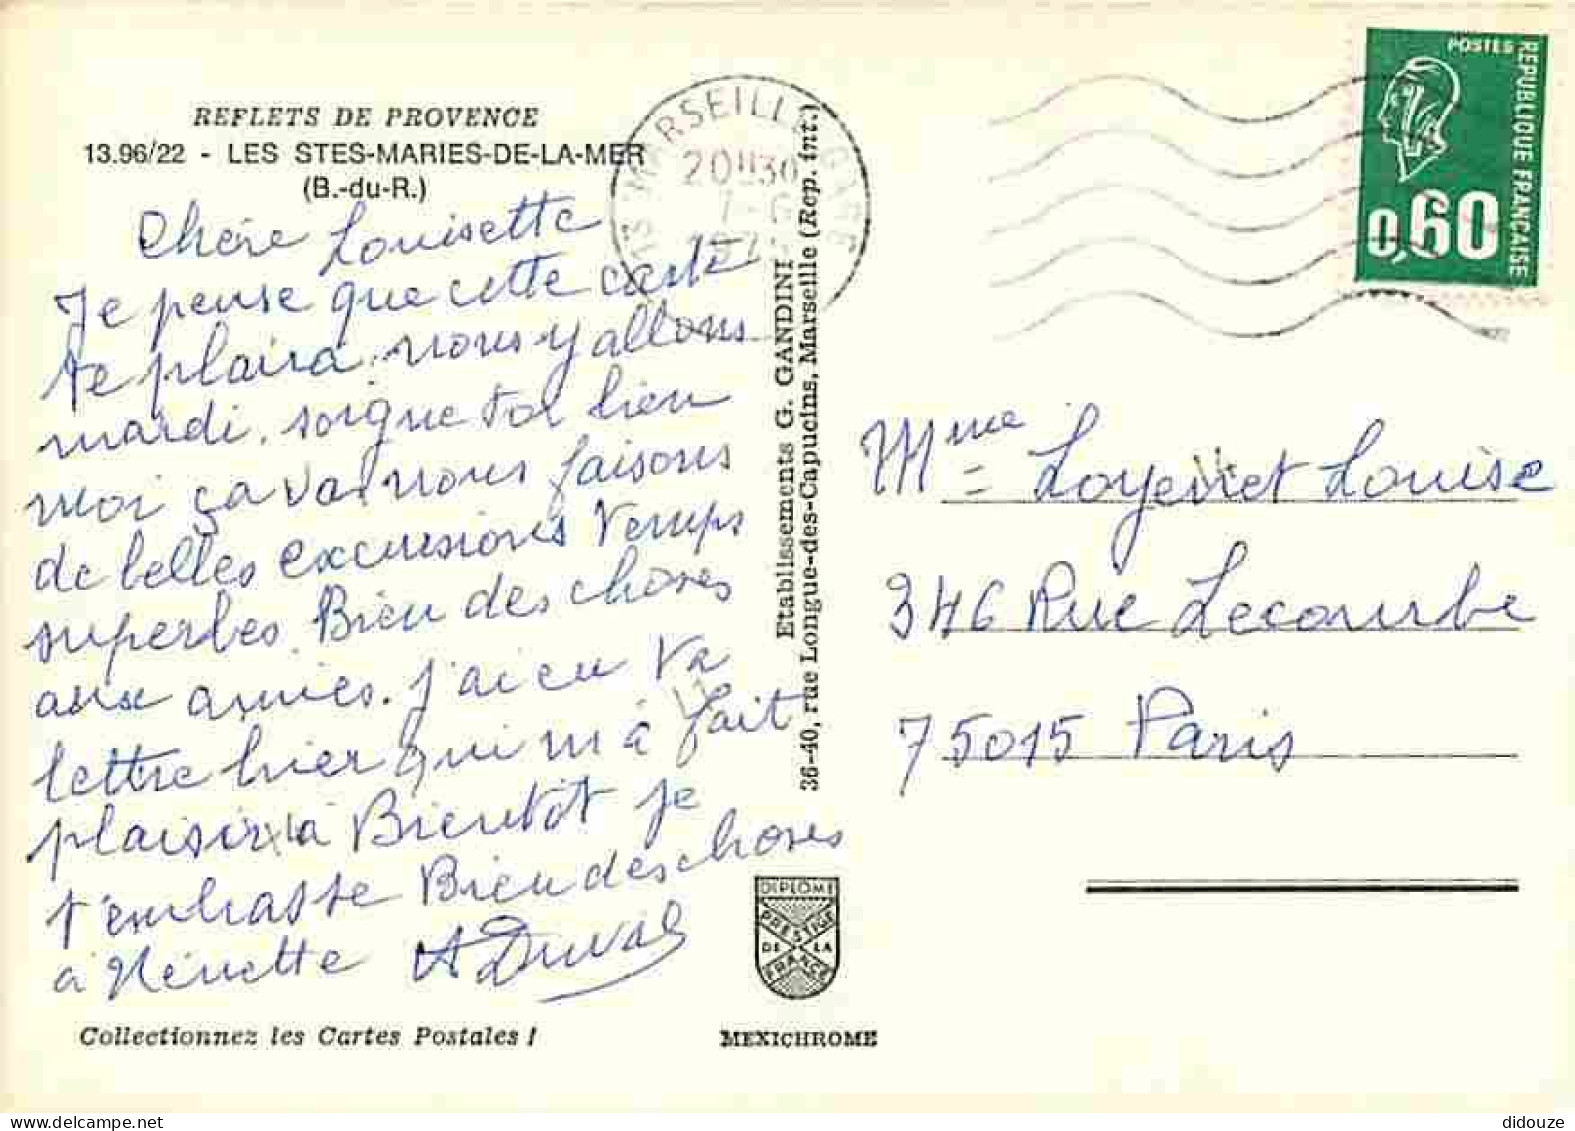 REFLETS DE PROVENCE
13.96/22 - LES STES-MARIES-DE-LA-MER
(B.-du-R.)
Chère Louisette
Je pense que cette carte
te plaira, nous y allons
mardi. soigne toi bien
moi ça va, nous faisons
de belles excursions Temps
superbes. Bien des choses
aux amies. j'ai eu ta
lettre hier qui m'a fait
plaisir à Bientôt je
t'embrasse Bien des choses
à Nénette A Duval
Collectionnez les Cartes Postales !
Etablissements G. GANDINI
36-40, rue Longue-des-Capucins, Marseille (Rep. int.)
DIPLOME
PRESTIGE
DE LA
FRANCE
MEXICHROME
13 MARSEILLE GARE
20H30
7-6
POSTES
REPUBLIQUE FRANÇAISE
0,60
Mme Louise
346 Rue Lecourbe
75015 Paris
didouze